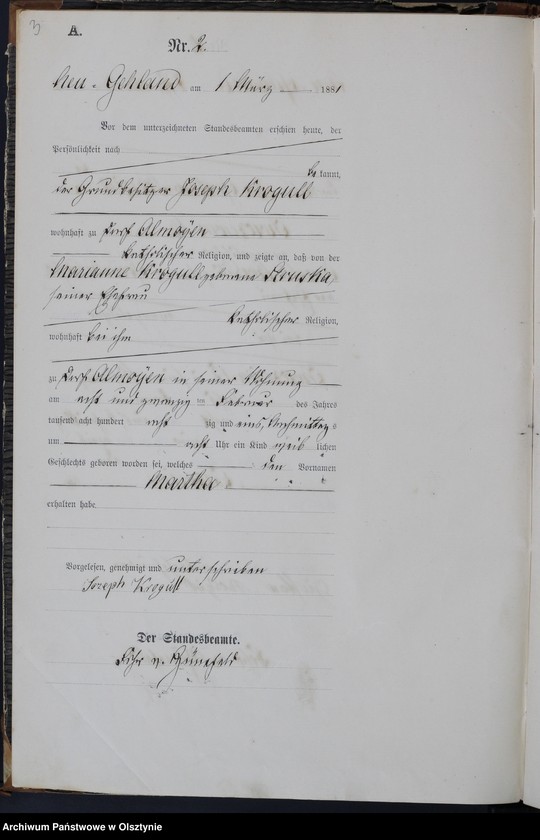 3
A.
Nr. 2.
Neu-Gehland am 1 März 1881
Vor dem unterzeichneten Standesbeamten erschien heute, der
Persönlichkeit nach
be kannt,
der Grundbesitzer Joseph Krogull
wohnhaft zu Dorf Almoyen
katholischer Religion, und zeigte an, daß von der
Marianne Krogull geborene
seiner Ehefrau
katholischer Religion,
wohnhaft bei ihm
zu Dorf Almoyen in seiner Wohnung
am acht und zwanzig ten Februar des Jahres
tausend acht hundert acht zig und eins, Nachmittags
um acht Uhr ein Kind weib lichen
Geschlechts geboren worden sei, welches den Vornamen
Martha
erhalten habe.
Vorgelesen, genehmigt und unterschrieben
Joseph Krogull
Der Standesbeamte.
Archiwum Państwowe w Olsztynie